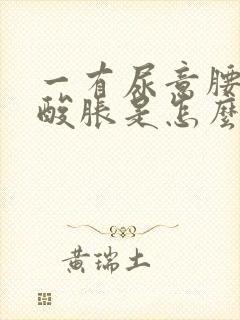 一有尿意腰
酸脹是怎麼
黃瑞土